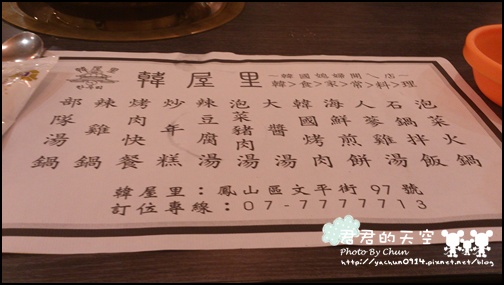 韓屋里
~韓國媳婦開ㄟ店~
韓>食>家>常>料>理
部隊湯鍋
辣雞鍋
烤肉快餐
炒年糕
辣豆腐湯
泡菜豬肉湯
大醬湯
韓國烤肉
海鮮煎餅
人蔘雞湯
石鍋拌飯
泡菜火鍋
韓屋里：鳳山區文平街 97 號
訂位專線：07-7777713
君君的天空
Photo By Chun
http://yachun0914.pixnet.net/blog